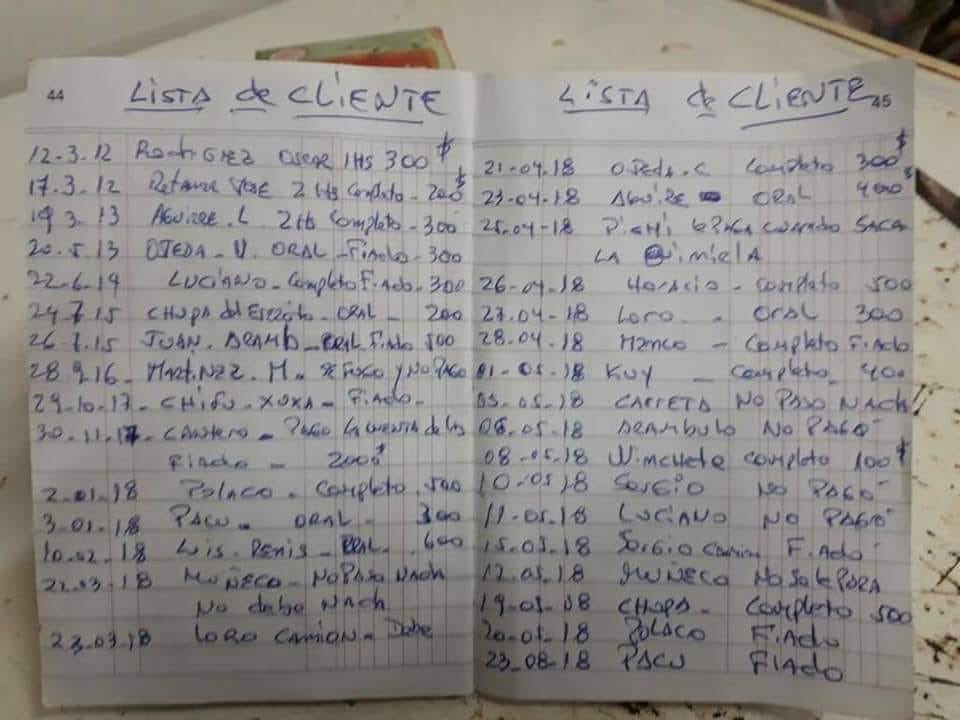 44
LISTA de CLIENTE
12-3.12 Rodriguez Oscar 1HS 300$
17-3.12 Retamar José 2 Hs Completo - 200$
19 3.13 Aguirre. L 2Hs Completo - 300
20.5.13 OJEDA - V. ORAL - Fiado - 300
22-6.14 LUCIANO - Completo Fiado - 300
24.7.15 CHUPA del Ejercito - ORAL - 200
26.7.15 JUAN. ARAMB - ORAL Fiado 500
28.9.16 - Martinez. M. Y NO PAGO
29-10-17 - CHIFU - XUXA - Fiado -
30-11-17 - CANTERO - PAGO la CUENTA de los
Fiado - 2000$
2-01-18 POLACO - Completo. 500
3-01-18 PACU - ORAL - 300
10-02-18 Luis. Denis - ORAL. 600
22-03-18 MUÑECO - No PASO NACH
No debo NACH
23-03-18 LORO CAMION - Debe
LISTA de CLIENTE
45
21-04.18 Completo 300$
23-04-18 AGUIRE ORAL 400$
25-04-18 PICHI CUANDO SACA
LA
26-04.18 HORACIO - Completo 500
27.04-18 Loro - ORAL 300
28-04.18 MANCO - Completo Fiado
01-05.18 KUY - Completo 400
05-05.18 CARRETA NO PASO NACH
06.05-18 ARAMBULO NO PAGO
08-05.18 Winchete Completo 100$
10-05.18 SERGIO NO PAGO
11-05.18 LUCIANO NO PAGO
15-05.18 SERGIO Camion FIADO
17-05.18 MUÑECO No Se le PARA
19-05-08 CHUPA - Completo 500
20-05-18 POLACO FIADO
23-08-18 PACU FIADO